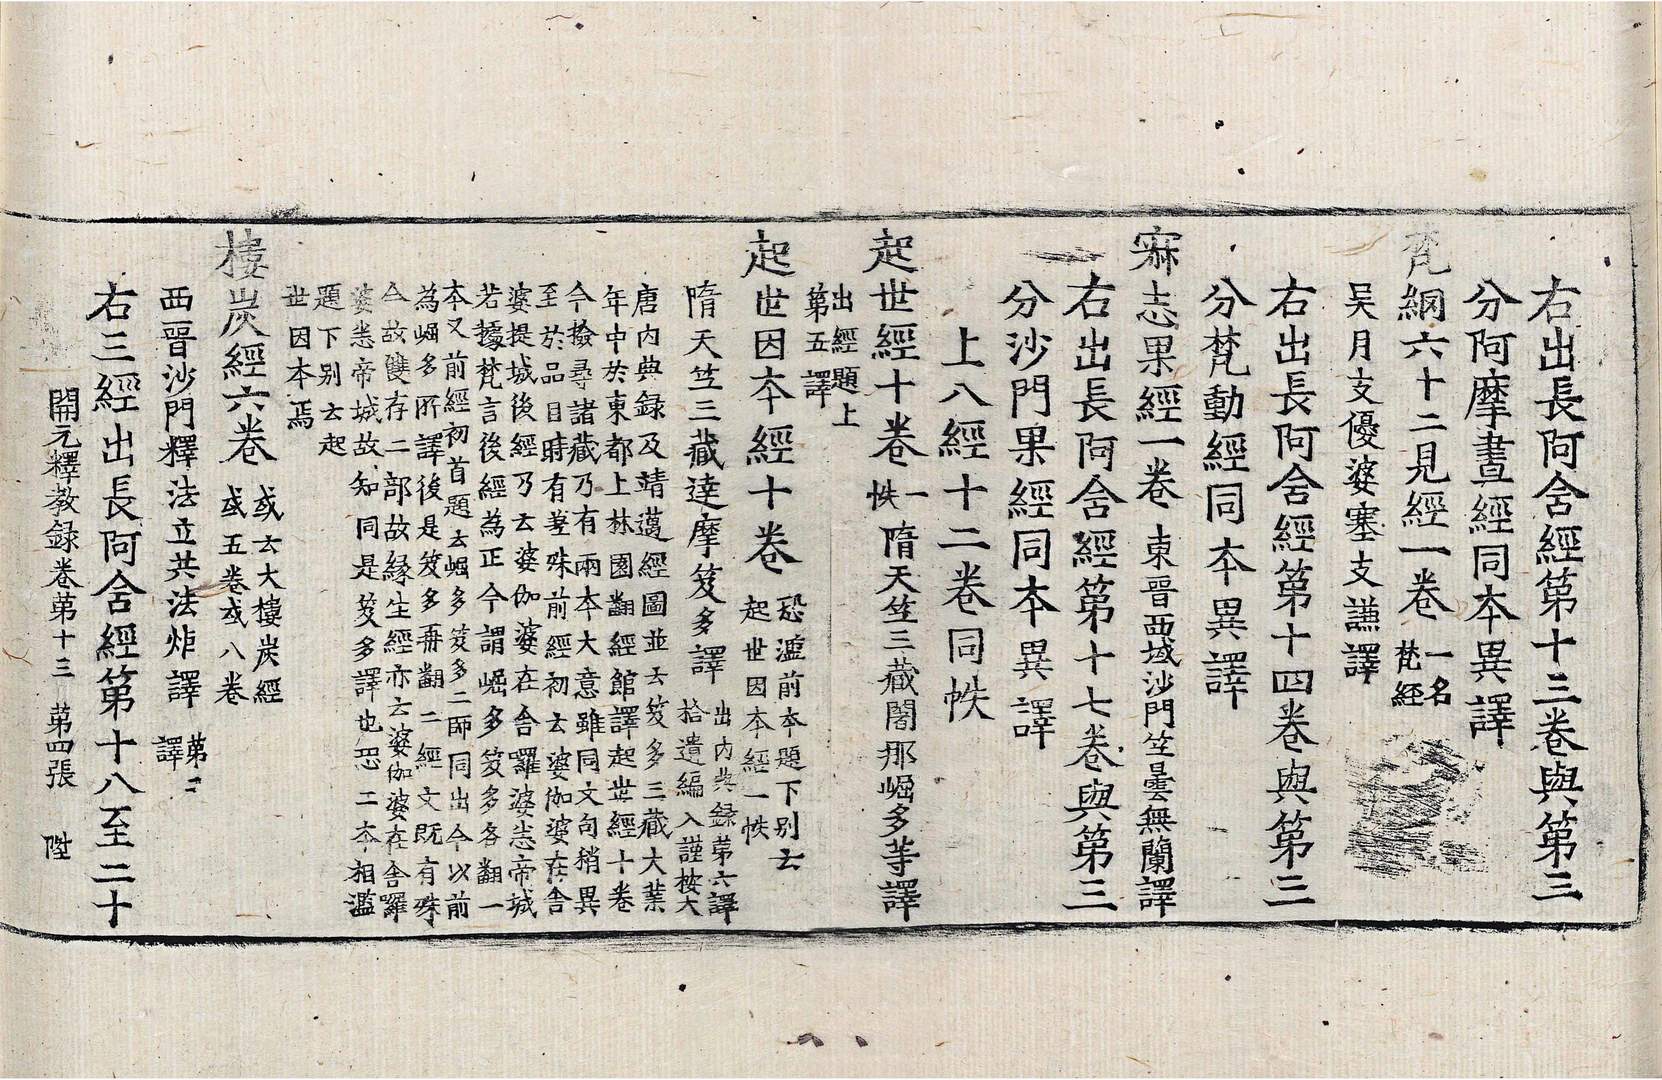 右出長阿含經第十三卷與第三
分阿摩晝經同本異譯
梵網六十二見經一卷
一名
梵經
吳月支優婆塞支謙譯
右出長阿含經第十四卷與第三
分梵動經同本異譯
寂志果經一卷 東晉西域沙門竺曇無蘭譯
右出長阿含經第十七卷與第三
分沙門果經同本異譯
上八經十二卷同帙
起世經十卷
一
帙
隋天竺三藏闍那崛多等譯
出經題上
第五譯
起世因本經十卷
恐濫前本題下別云
起世因本經一帙
隋天竺三藏達摩笈多譯
出內典錄第六譯
拾遺編入謹按大
唐內典錄及靖邁經圖並云笈多三藏大業
年中於東都上林園翻經館譯起世經十卷
今撿尋諸藏乃有兩本大意雖同文句稍異
至於品目時有差殊前經初云婆伽婆在舍
婆提城後經乃云婆伽婆在舍囉婆悉帝城
若據梵言後經為正今謂崛多笈多各翻一
本又前經初首題云崛多笈多二師同出今以前
為崛多所譯後是笈多再翻二經文既有殊
今故雙存二部故緣生經亦云婆伽婆在舍囉
婆悉帝城故知同是笈多譯也恐二本相濫
題下別云起
世因本焉
樓炭經六卷
或云大樓炭經
或五卷或八卷
西晉沙門釋法立共法炬譯
第二
譯
右三經出長阿含經第十八至二十
開元釋教録卷第十三 第四張 陞